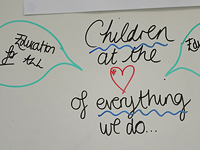 Education
for
ALL
Children
at the
of everything
we do...